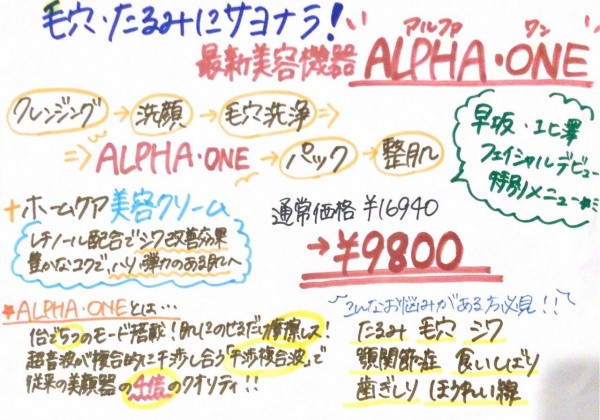 毛穴・たるみにサヨナラ!
最新美容機器
アルファ ワン
ALPHA・ONE
クレンジング→洗顔→毛穴洗浄⇒
⇒ALPHA・ONE→パック→整肌
早坂・北澤
フェイシャルデビュー
特別メニュー★
+ホームケア美容クリーム
レチノール配合でシワ改善効果
豊かなコクで、ハリ、弾力のある肌へ
通常価格 ¥16940
→¥9800
★ALPHA・ONEとは…
1台で5つのモード搭載!肌にのせるだけ摩擦レス!
超音波が複合的に干渉し合う「干渉複合波」で
従来の美顔器の4倍のクオリティ!!
こんなお悩みがある方必見!!
たるみ 毛穴 シワ
顎関節症 食いしばり
歯ぎしり ほうれい線